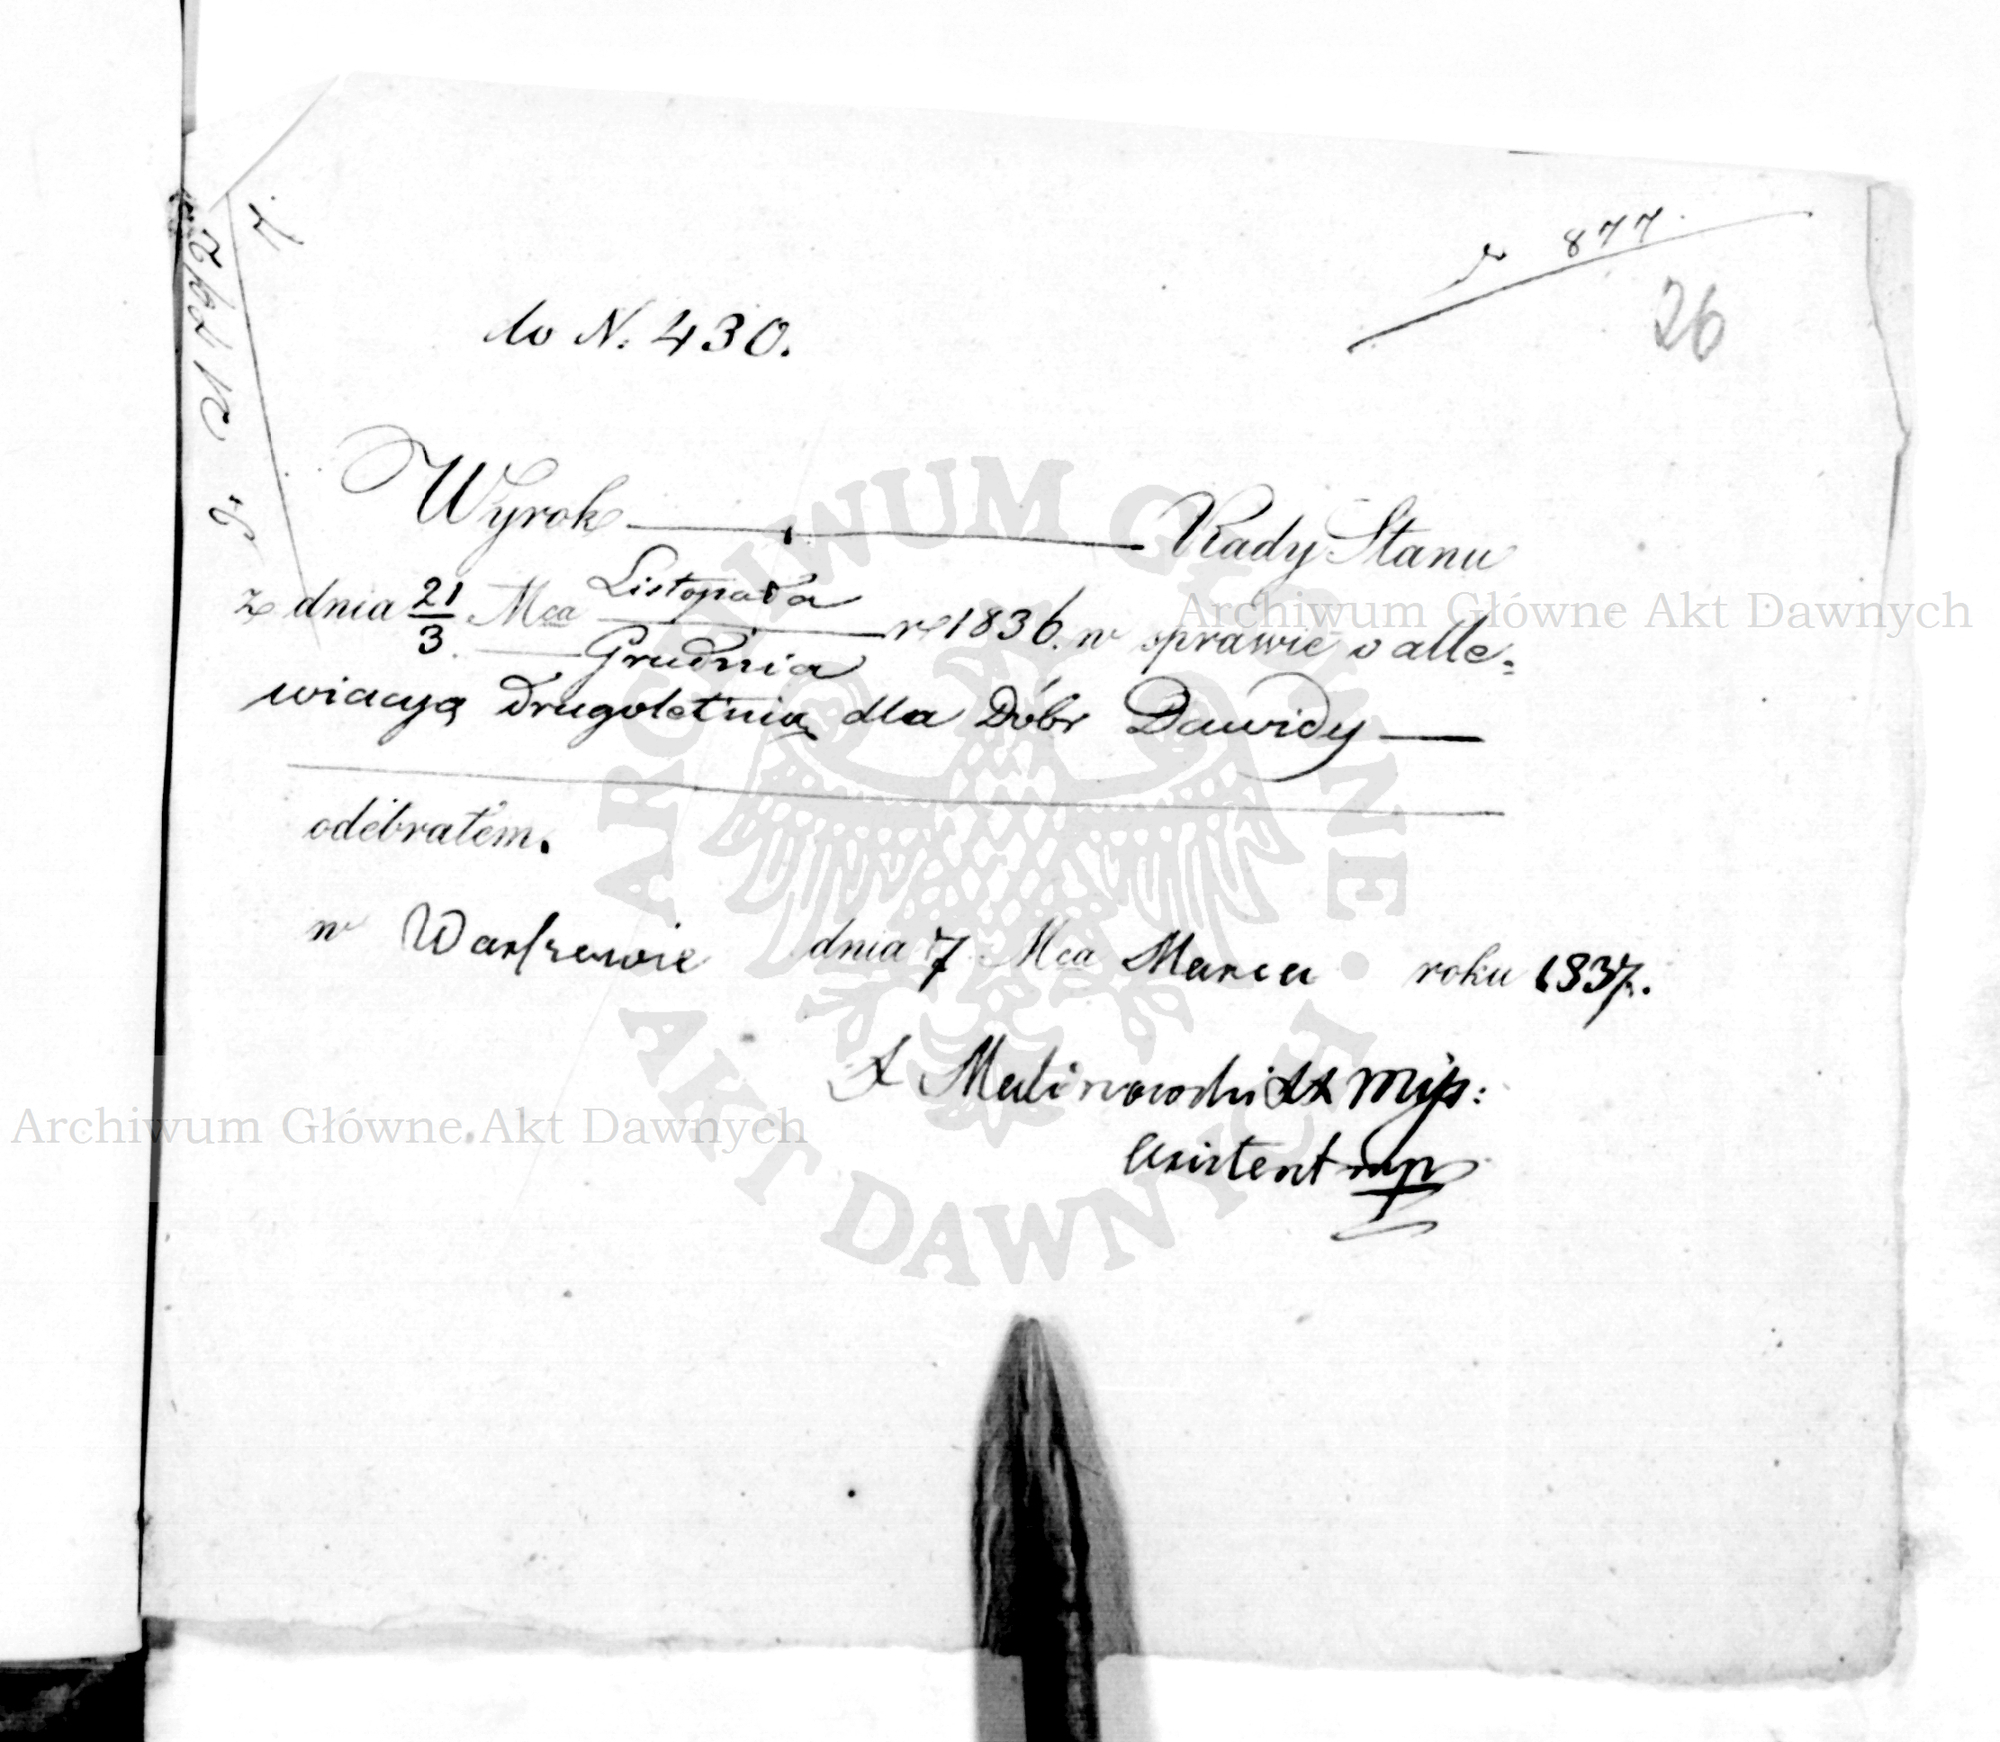 do 877
26
do N. 430.
Wyrok Rady Stanu
z dnia 21/3. Mca Listopada/Grudnia r 1836. w sprawie o alle=
wiacyą Drugoletnią dla Dóbr Dawidy
odebrałem.
w Warszawie dnia 7 Mca Marca roku 1837.
Malinowski mp:
Assistent mp
Archiwum Główne Akt Dawnych
Archiwum Główne Akt Dawnych
ARCHIWUM GŁÓWNE · AKT DAWNYCH